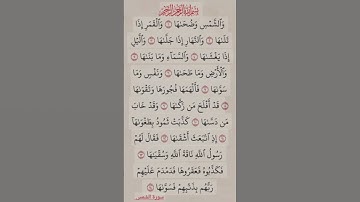 بسم الله الرحمن الرحيم
وَٱلشَّمْسِ وَضُحَىٰهَا وَٱلْقَمَرِ إِذَا
تَلَىٰهَا وَٱلنَّهَارِ إِذَا جَلَّىٰهَا وَٱلَّيْلِ
إِذَا يَغْشَىٰهَا وَٱلسَّمَآءِ وَمَا بَنَىٰهَا
وَٱلْأَرْضِ وَمَا طَحَىٰهَا وَنَفْسٍ وَمَا
سَوَّىٰهَا فَأَلْهَمَهَا فُجُورَهَا وَتَقْوَىٰهَا
قَدْ أَفْلَحَ مَن زَكَّىٰهَا وَقَدْ خَابَ
مَن دَسَّىٰهَا كَذَّبَتْ ثَمُودُ بِطَغْوَىٰهَا
إِذِ ٱنۢبَعَثَ أَشْقَىٰهَا فَقَالَ لَهُمْ
رَسُولُ ٱللَّهِ نَاقَةَ ٱللَّهِ وَسُقْيَٰهَا
فَكَذَّبُوهُ فَعَقَرُوهَا فَدَمْدَمَ عَلَيْهِمْ
رَبُّهُم بِذَنۢبِهِمْ فَسَوَّىٰهَا
سورة الشمس